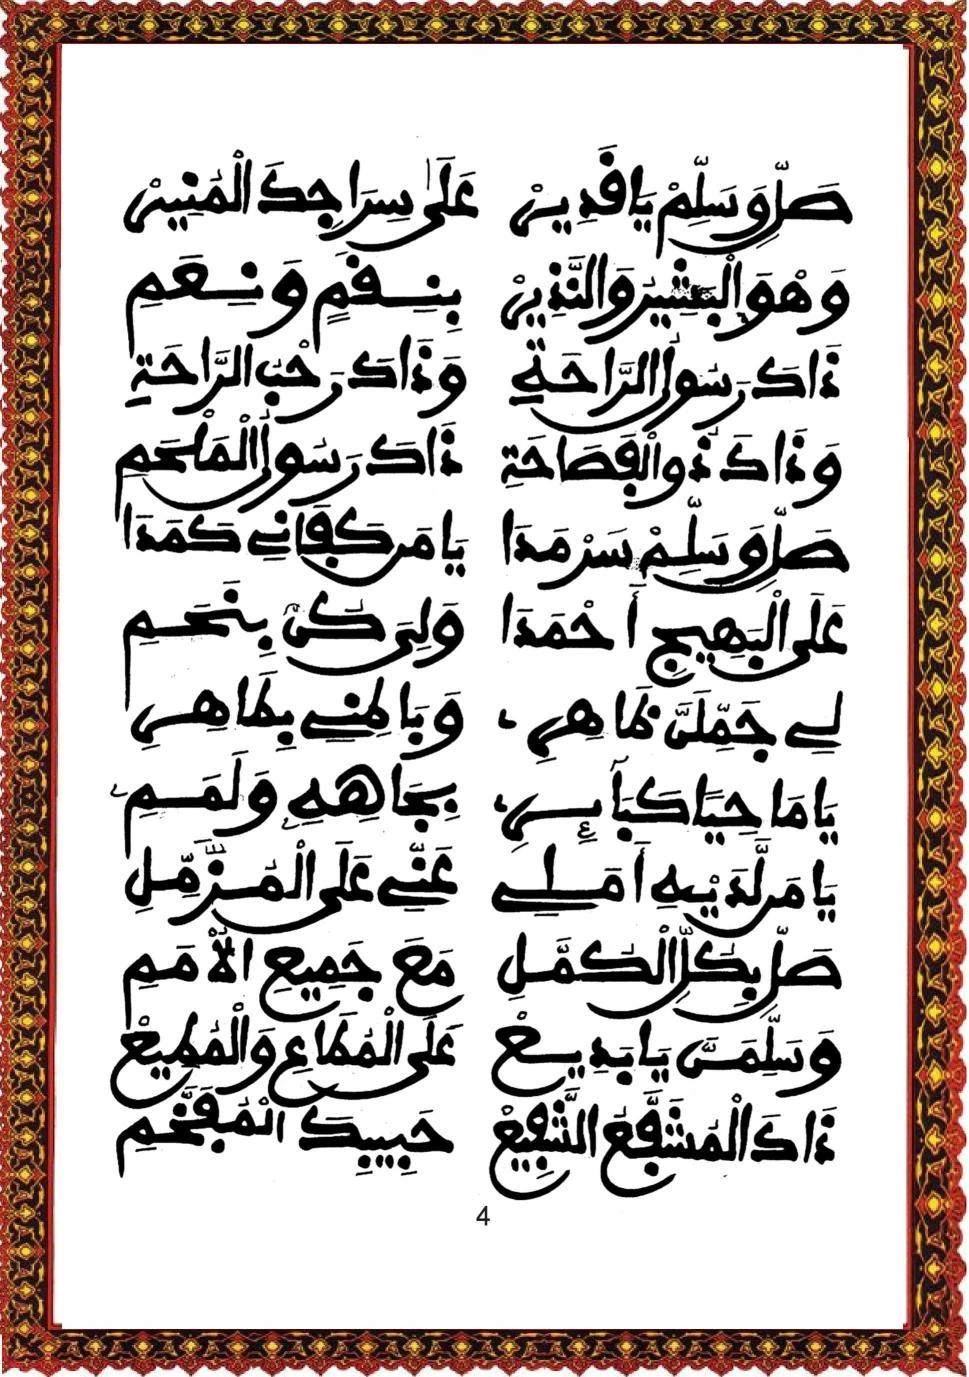 صَلِّ وَسَلِّمْ يَا قَدِيرْ عَلَى سِرَاجِكَ الْمُنِيرْ
وَهْوَ الْبَشِيرُ وَالنَّذِيرْ بِنِقَمٍ وَنِعَمِ
ذَاكَ رَسُولُ الرَّاحَةِ وَذَاكَ رَحْبُ الرَّاحَةِ
وَذَاكَ ذُو الْفَصَاحَةِ ذَاكَ رَسُولُ الْمَلْحَمِ
صَلِّ وَسَلِّمْ سَرْمَدَا يَا مَن كَفَانِي كَمَدَا
عَلَى الْبَهِيجِ أَحْمَدَا وَلِيَ كُنْ بِنَحَمِ
لِي جَمِّلَنَّ ظَاهِرِي وَبَاطِنِي بِطَاهِرِ
يَا مَاحِيًا كَبَآئِرِي بِجَاهِهِ وَلَمَمِ
يَا مَن لَّدَيْهِ أَمَلِي عَنِّي عَلَى الْمُزَّمِّلِ
صَلِّ بِكُلِّ الْكُمَّلِ مَعَ جَمِيعِ الْأُمَمِ
وَسَلِّمَنَّ يَا بَدِيعْ عَلَى الْمُطَاعِ وَالْمُطِيعْ
ذَاكَ الْمُشَفَّعُ الشَّفِيعْ حَبِيبِكَ الْمُفَخَّمِ
4